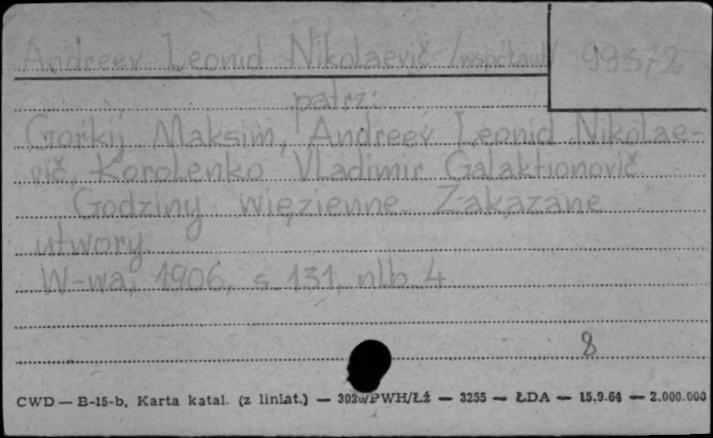 Andreev Leonid Nikolaevič /współaut/ 99372
patrz:
Gorkij Maksim, Andreev Leonid Nikolae-
vič, Korolenko Vladimir Galaktionovič
Godziny więzienne. Zakazane
utwory.
W-wa, 1906, s. 131, nlb. 4
8
CWD — B-15-b, Karta katal. (z liniat.) — 302u/PWH/Łż — 3255 — ŁDA — 15.9.64 — 2.000.000